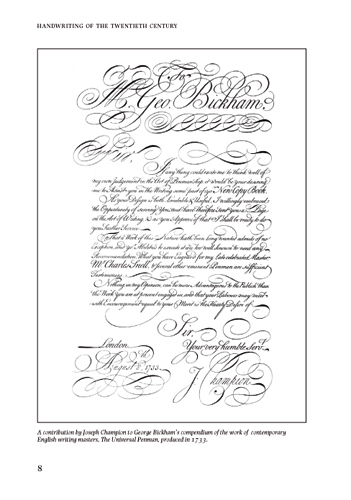 HANDWRITING OF THE TWENTIETH CENTURY
To
Mr. Geo. Bickham.
Sir,
If any thing could excite me to think well of
my own Judgement in the Art of Penmanship, it would be your desiring
me to Assist you in the Writing some part of yr. New Copy Book.
As your Design is both Laudable & Useful, I willingly embraced
the Opportunity of serving You, and have therefore sent you a Page
in the Art of Writing. If you Approve of that I shall be ready to do
you further Service
That a Work of this Nature hath been long wanted admits of no
Exception, and yr. Abilities to execute it are too well known to need any
Recommendation. What you have Engrav'd for my Late celebrated Master
Mr. Charles Snell, & several other eminent Penmen are sufficient
Testimonies.
Nothing in my Opinion, can be more Advantageous to the Publick than
the Work you are at present engag'd in, and that your Labours may meet
with Encouragement equal to your Merit is the Hearty Desire of
Sir,
London
Your very humble Servt.
August 8th. 1733.
J. Champion.
A contribution by Joseph Champion to George Bickham's compendium of the work of contemporary
English writing masters, The Universal Penman, produced in 1733.
8